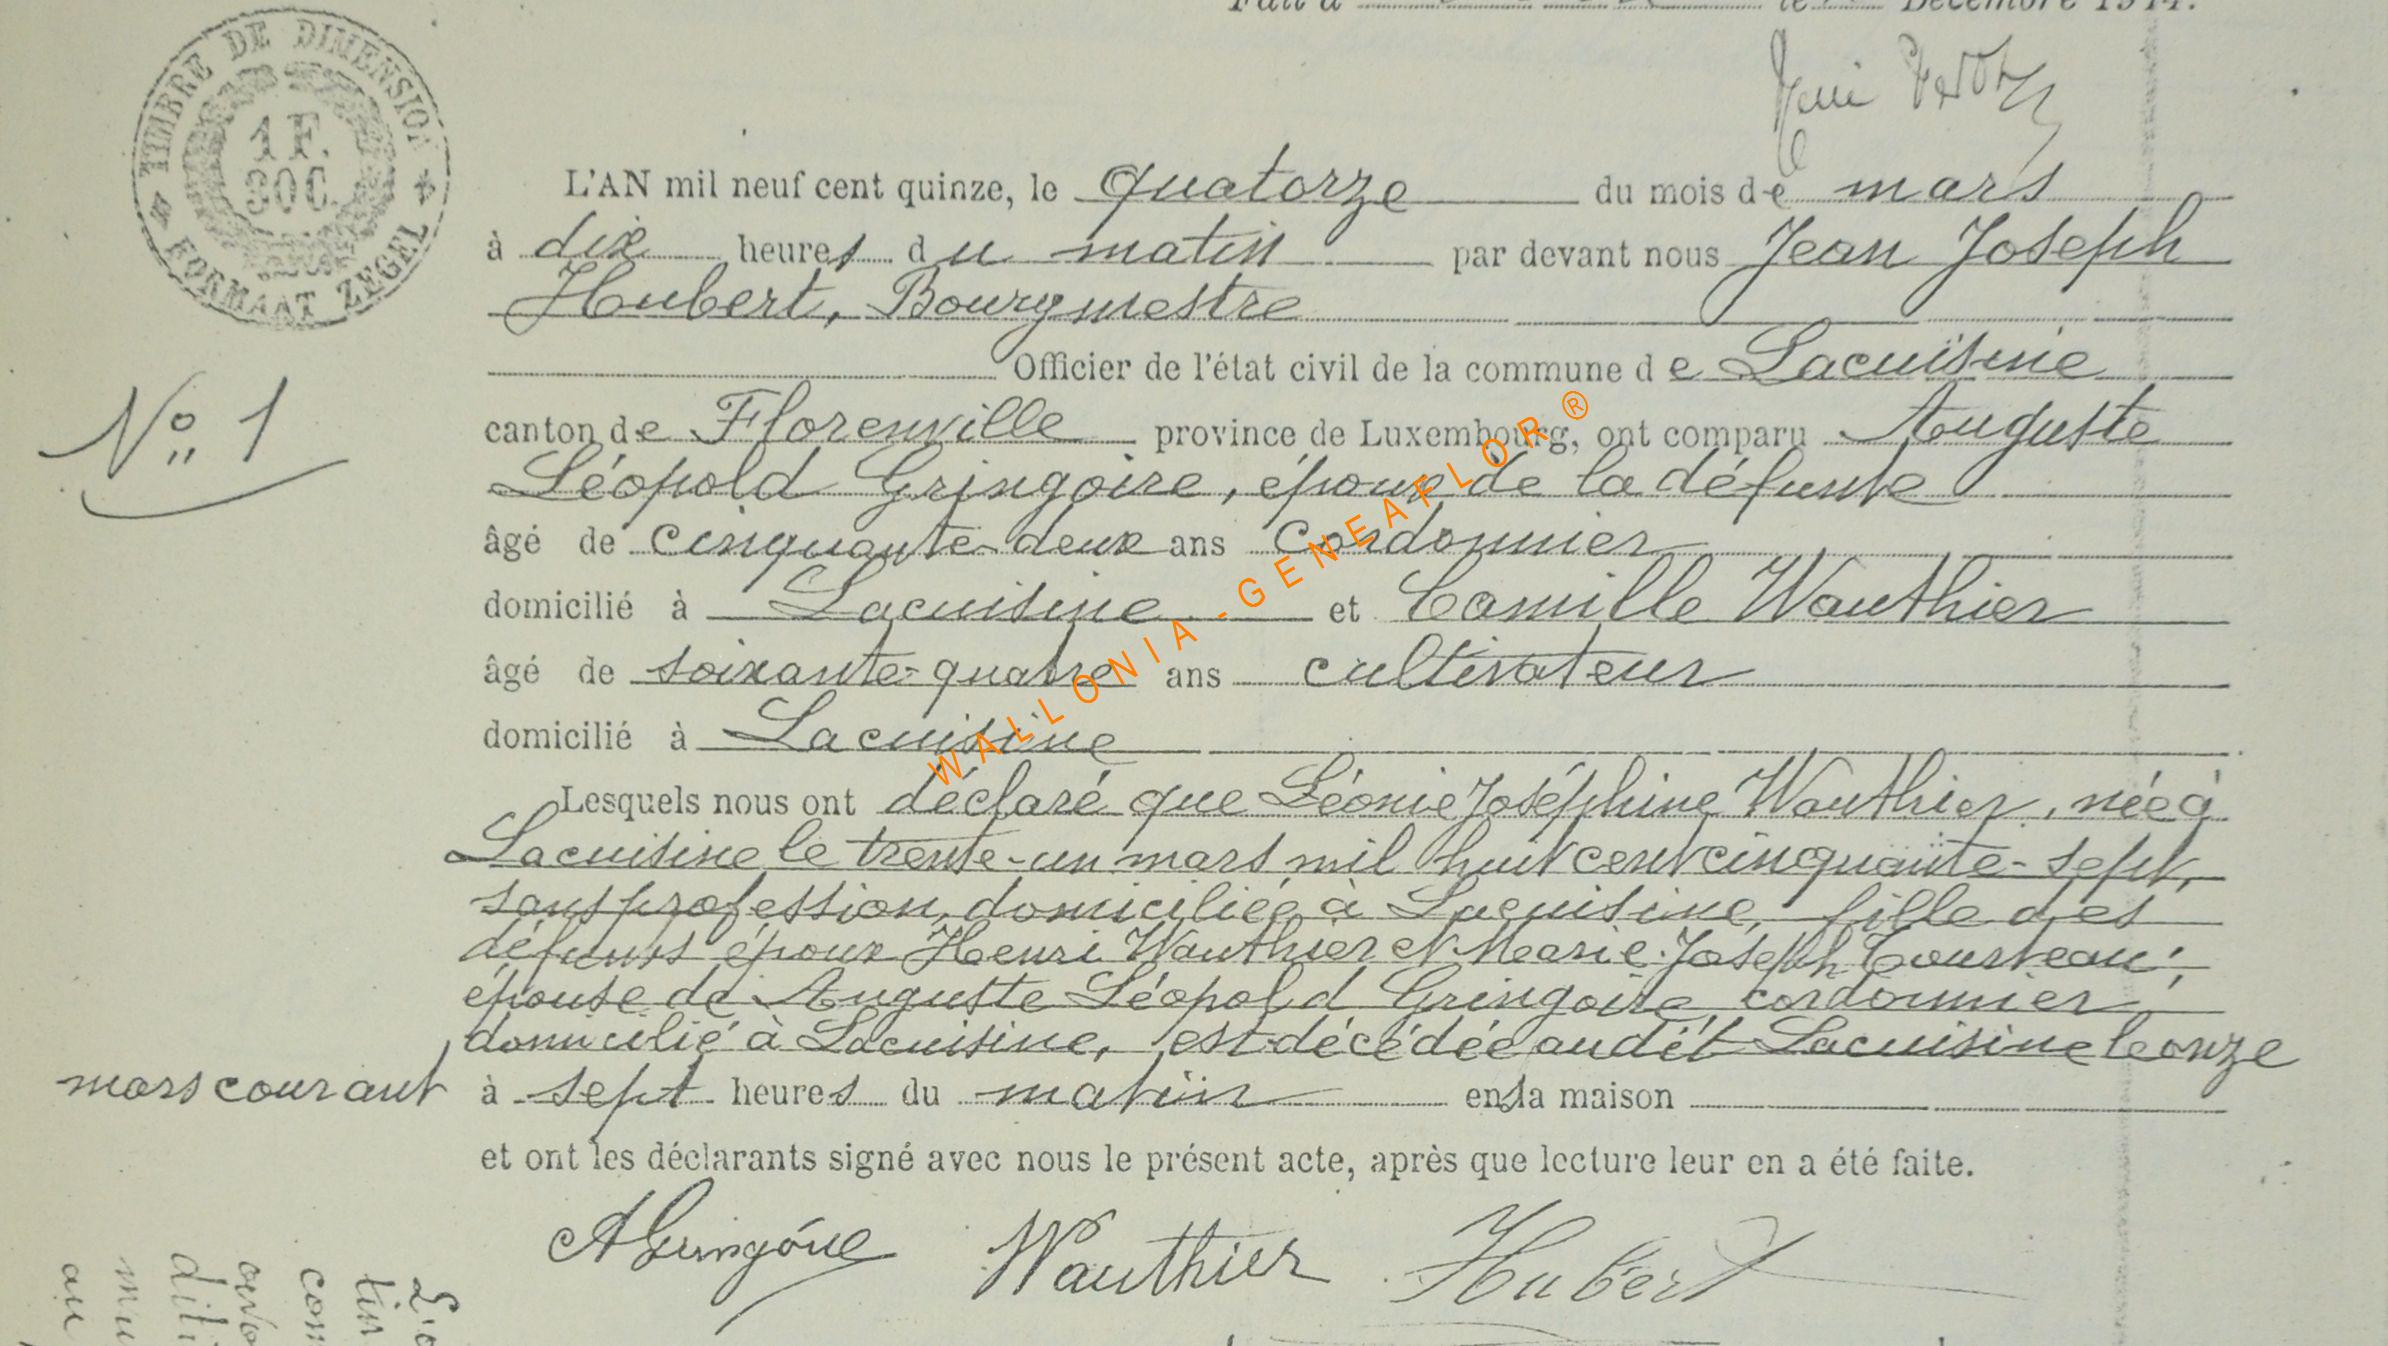 Décembre 1914.
TIMBRE DE DIMENSION
1 F.
30 C.
FORMAAT ZEGEL
L'AN mil neuf cent quinze, le quatorze du mois de mars
à dix heures du matin par devant nous Jean Joseph
Hubert, Bourgmestre
Officier de l'état civil de la commune de Lacuisine
N° 1
canton de Florenville province de Luxembourg, ont comparu Auguste
Léopold Gringoire, époux de la défunte
âgé de cinquante-deux ans Cordonnier
domicilié à Lacuisine et Camille Wauthier
âgé de soixante-quatre ans cultivateur
domicilié à Lacuisine
WALLONIA-GENEAFLOR®
Lesquels nous ont déclaré que Léonie Joséphine Wauthier, née à
Lacuisine le trente-un mars mil huit cent cinquante-sept,
sans profession, domiciliée à Lacuisine, fille des
défunts époux Henri Wauthier et Marie-Joseph Tourteau;
épouse de Auguste Léopold Gringoire, cordonnier,
domicilié à Lacuisine, est décédée audit Lacuisine le onze
mars courant à sept heures du matin en sa maison
et ont les déclarants signé avec nous le présent acte, après que lecture leur en a été faite.
AGringoire Wauthier Hubert